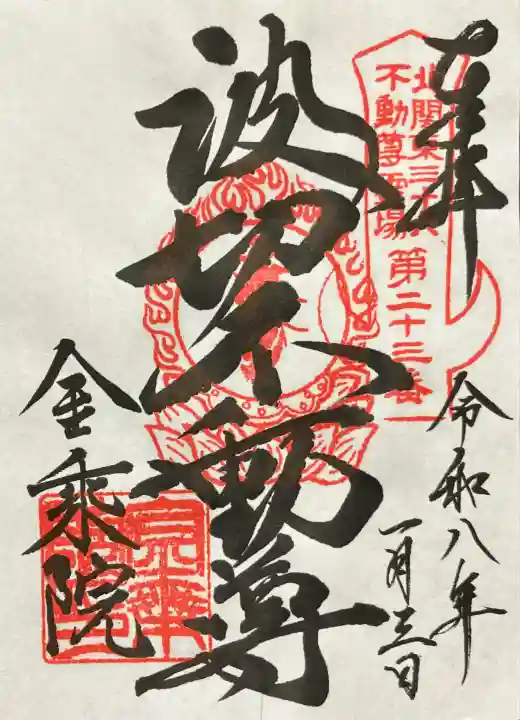 奉拝
北関東三十六
不動尊霊場
第二十三番
令和八年
一月三日
波切不動尊
金乗院